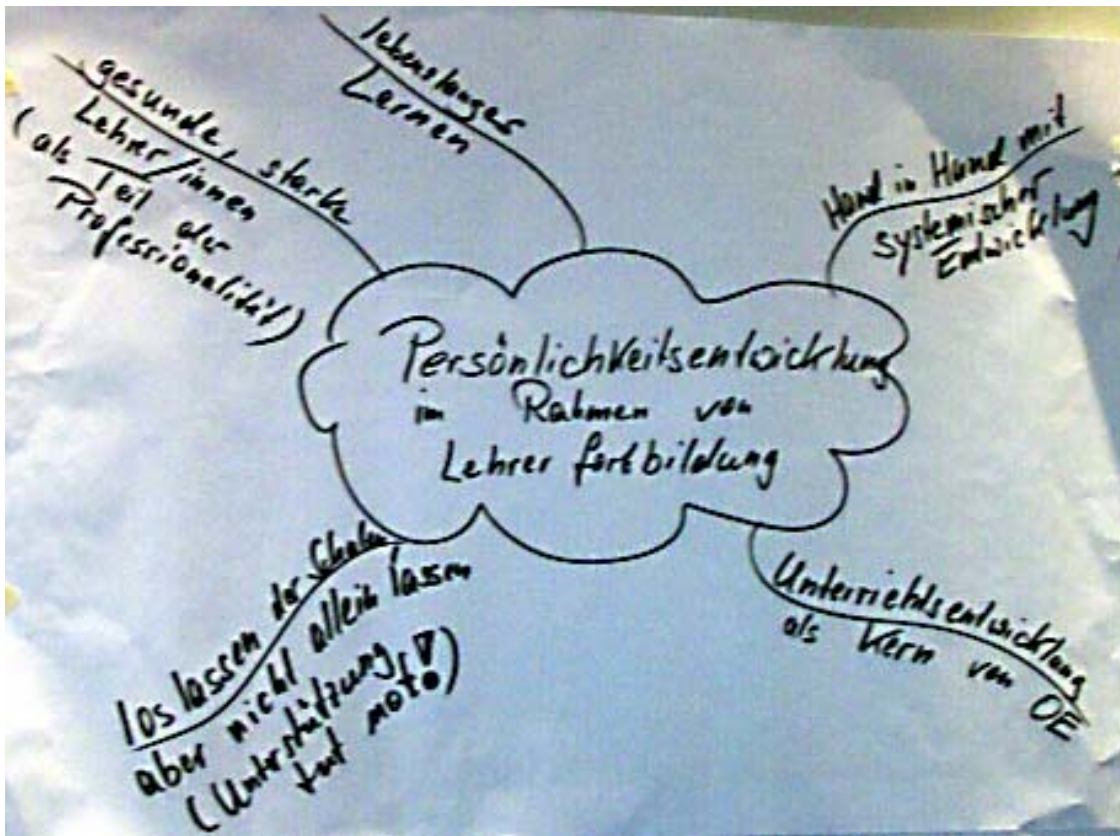 lebenslanges
Lernen
gesunde, starke
Lehrer/innen
(als Teil der
Professionalität)
Hand in Hand mit
systemischer
Entwicklung
Persönlichkeitsentwicklung
im Rahmen von
Lehrerfortbildung
loslassen der Schulen,
aber nicht allein lassen
(Unterstützung
tut not!)
Unterrichtsentwicklung
als Kern von OE